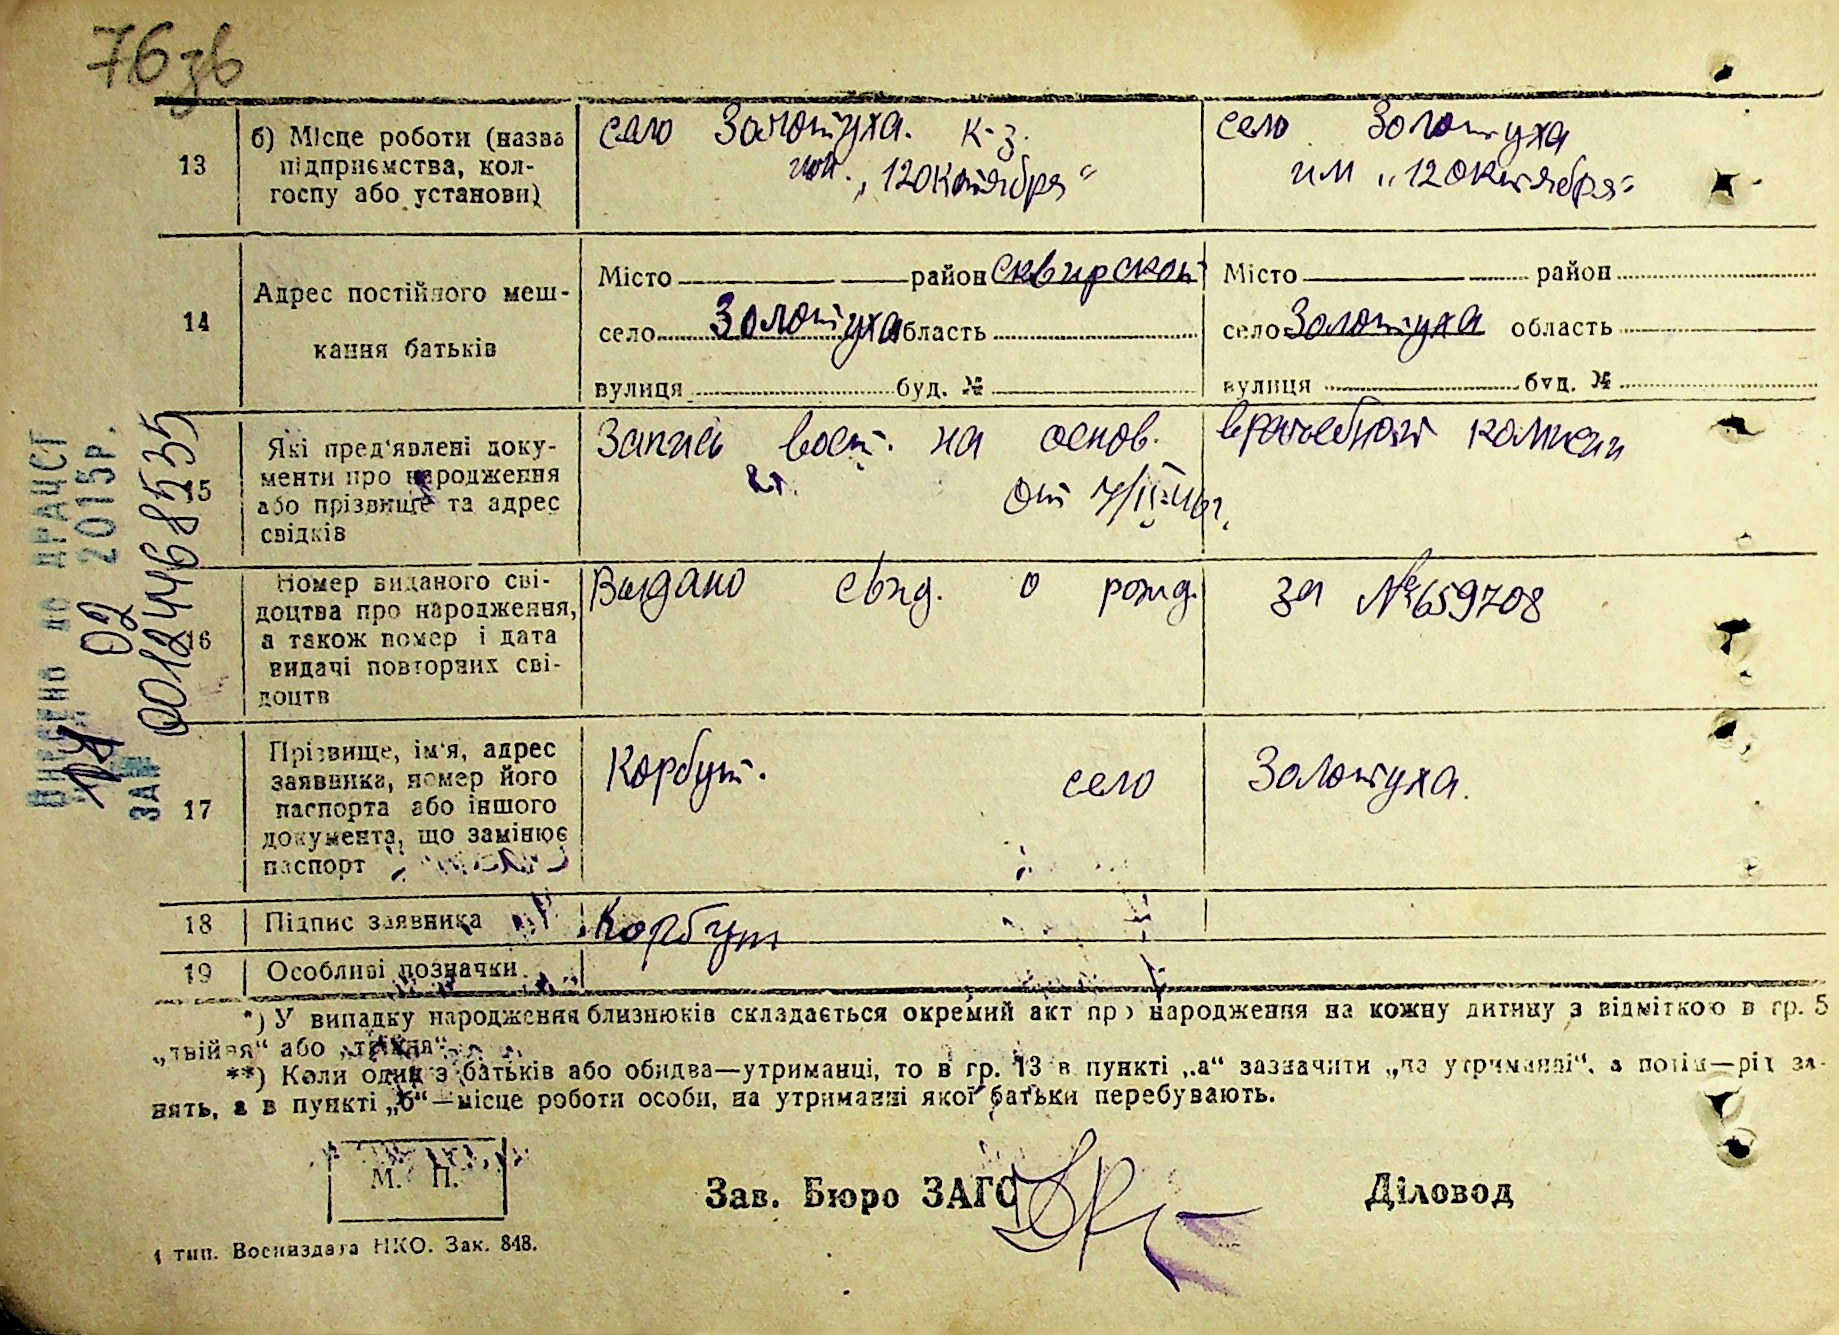 76зв
13
б) Місце роботи (назва
підприємства, кол-
госпу або установи)
село Золотуха. к-з.
им. „12 Октября“
село Золотуха
им „12 Октября“
14
Адрес постійного меш-
кання батьків
Місто район Сквирский
село Золотуха область
вулиця буд. №
Місто район
село Золотуха область
вулиця буд. №
15
Які пред'явлені доку-
менти про народження
або прізвище та адрес
свідків
Запись вост. на основ. врачебной комисии
от 7/II-46г.
16
Номер виданого сві-
доцтва про народження,
а також номер і дата
видачі повторних сві-
доцтв
Выдано свид. о рожд. за № 659708
17
Прізвище, ім'я, адрес
заявника, номер його
паспорта або іншого
документа, що замінює
паспорт
Корбут. село Золотуха.
18
Підпис заявника
Корбут
19
Особливі позначки
*) У випадку народження близнюків складається окремий акт про народження на кожну дитину з відміткою в гр. 5
„двійня“ або „трійня“.
**) Коли один з батьків або обидва—утриманці, то в гр. 13 в пункті „а“ зазначити „на утриманні“, а потім—рід за-
нять, а в пункті „б“—місце роботи особи, на утриманні якої батьки перебувають.
М. П.
Зав. Бюро ЗАГС
Діловод
1 тип. Воениздата НКО. Зак. 848.
Внесено до ДРАЦСГ
02 2015р.
ЗА №
00124468535